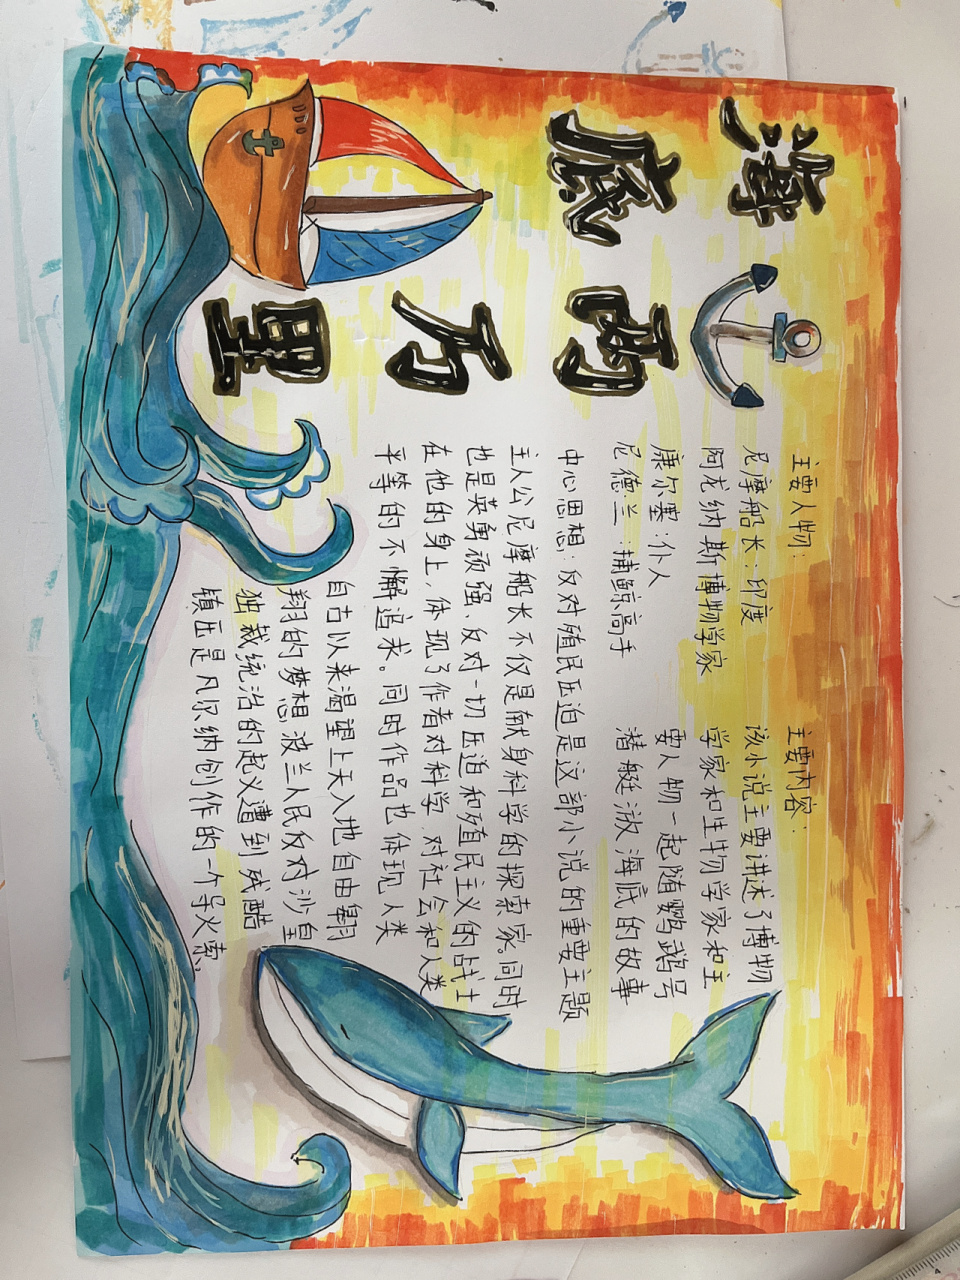 海
底两
万
里
主要人物:
尼摩船长:印度
阿龙纳斯博物学家
康尔塞:仆人
尼德兰:捕鲸高手
主要内容:
该小说主要讲述了博物
学家和生物学家和主
要人物一起随鹦鹉号
潜艇海底的故事
中心思想:反对殖民压迫是这部小说的重要主题
主人公尼摩船长不仅是献身科学的探索家。同时
也是英勇顽强、反对一切压迫和殖民主义的战士
在他的身上,体现了作者对科学.对社会和人类
平等的不懈追求。同时作品也体现人类
自古以来渴望上天入地自由翱
翔的梦想波兰人民反对沙皇
独裁统治的起义遭到残酷
镇压是凡尔纳创作的一个导火索、